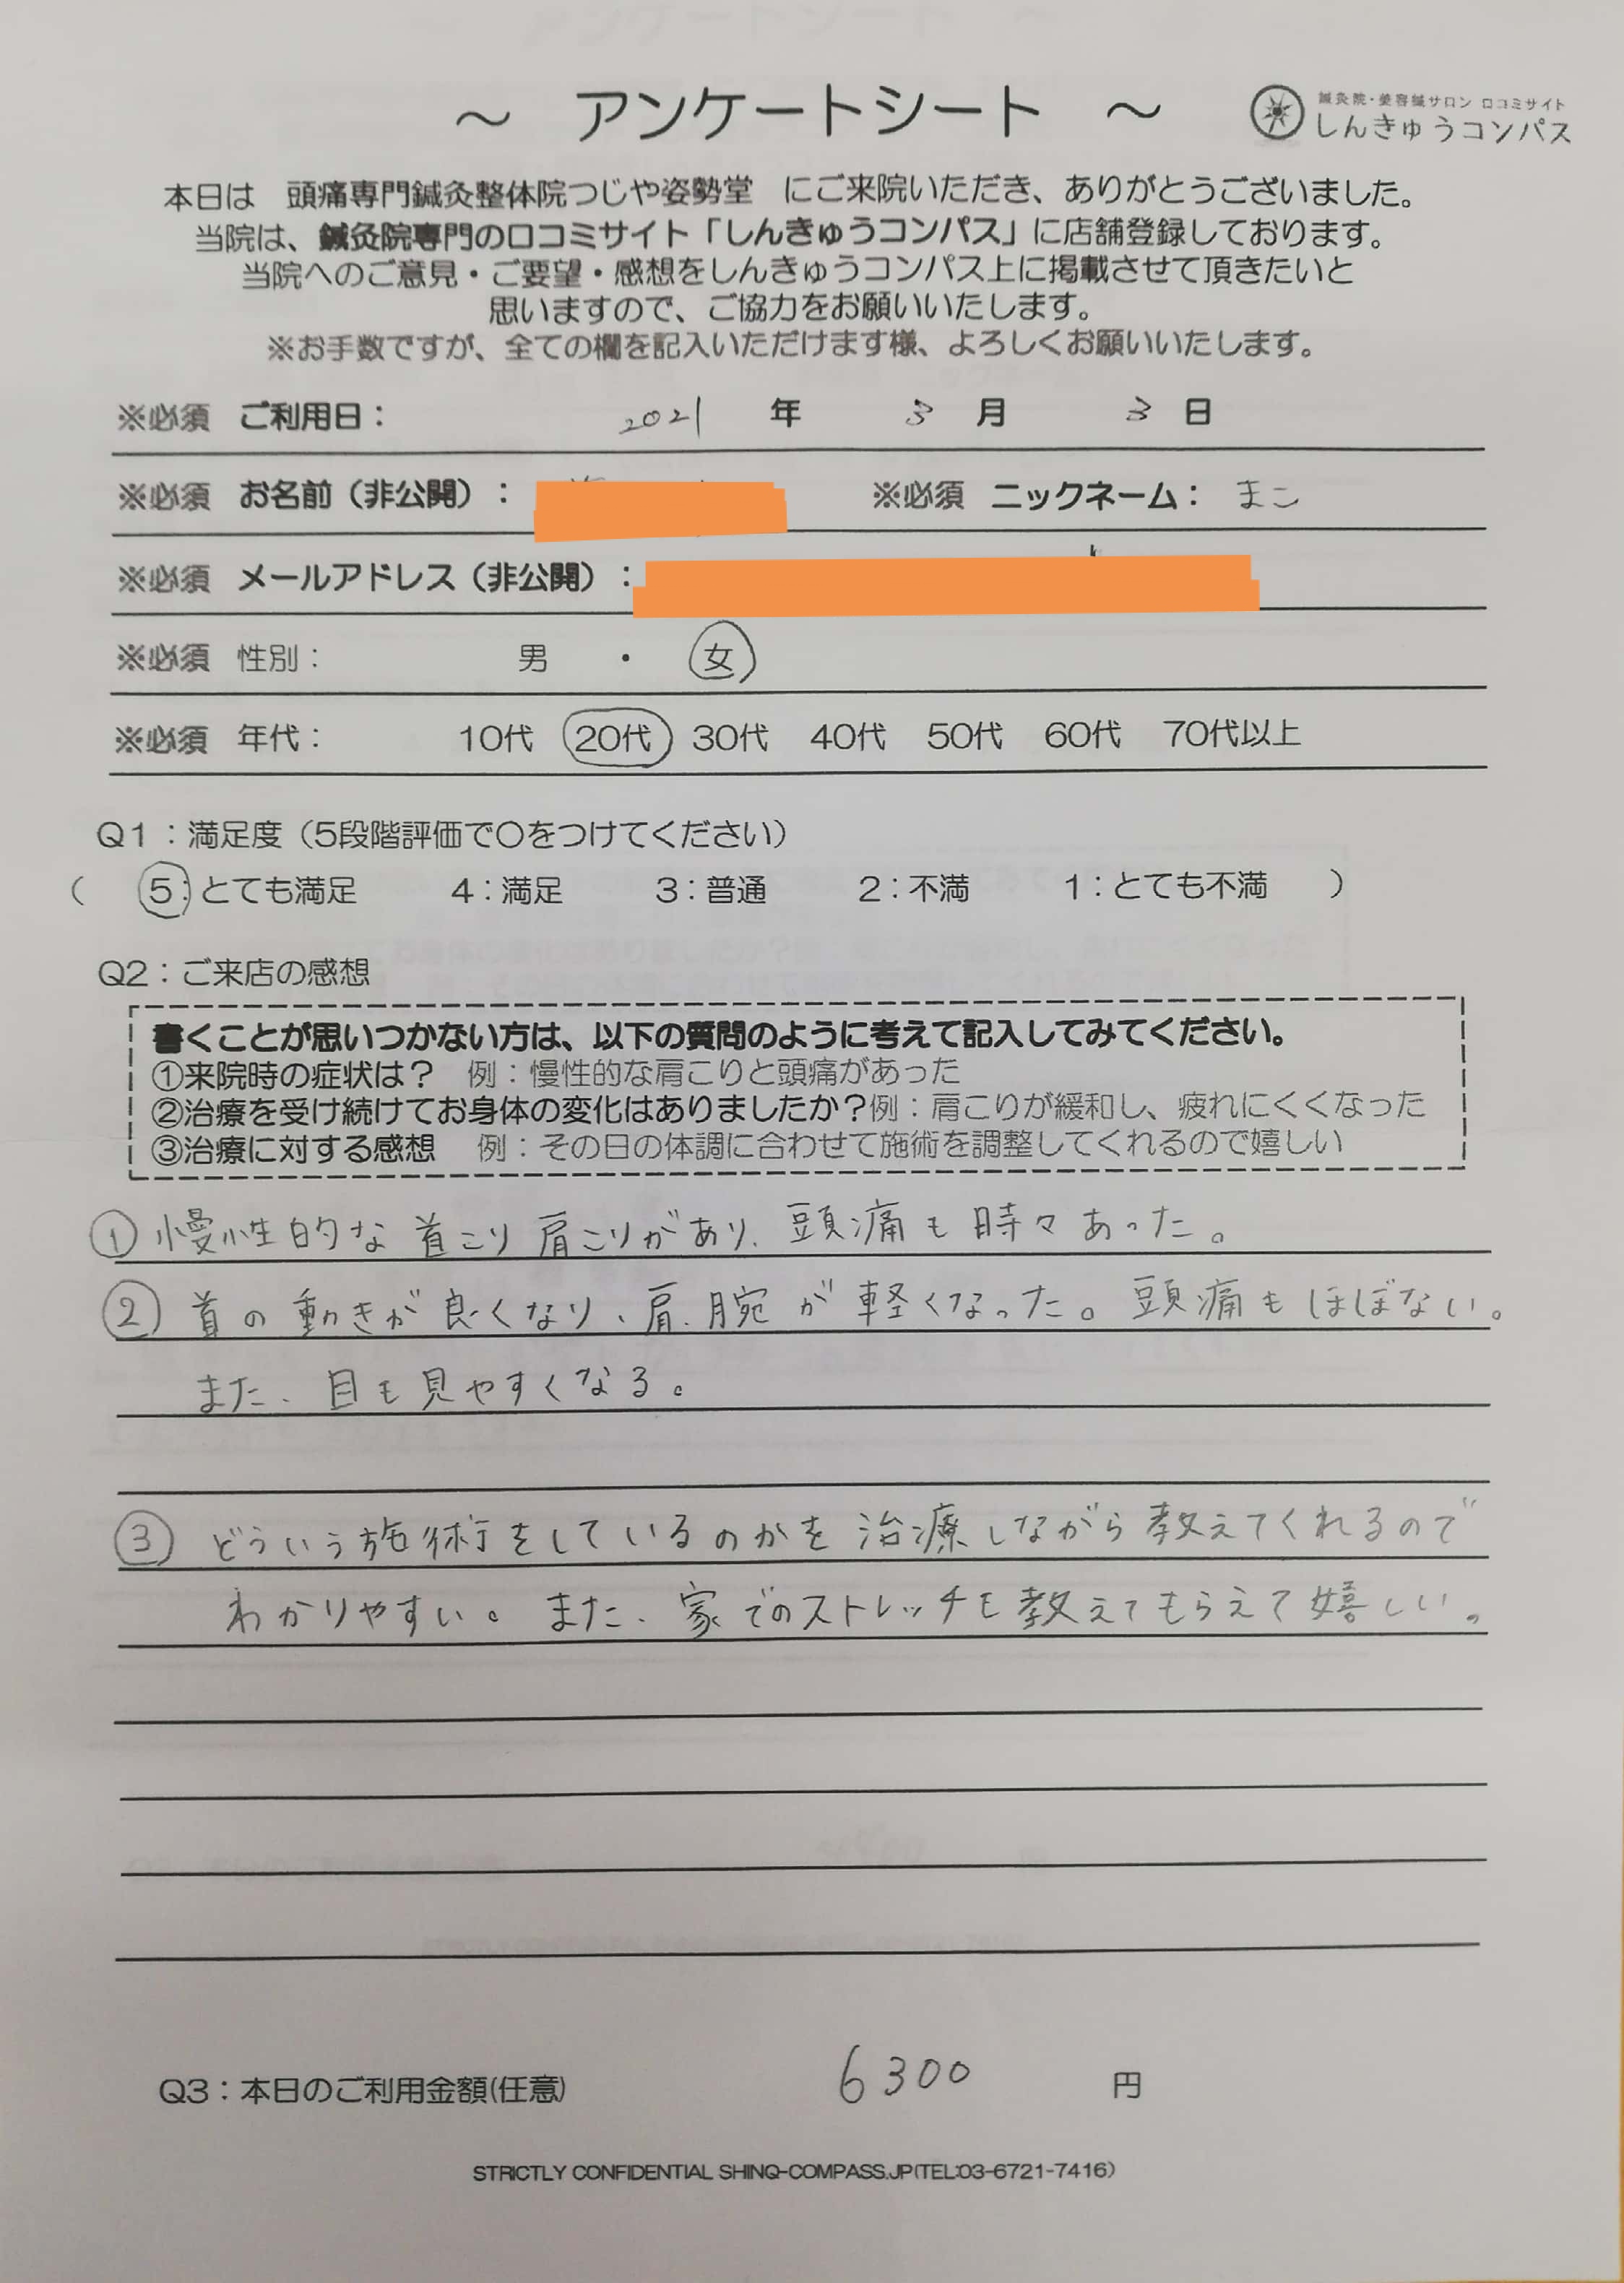 ～ アンケートシート ～
鍼灸院・美容鍼サロン 口コミサイト
しんきゅうコンパス
本日は 頭痛専門鍼灸整体院つじや姿勢堂 にご来院いただき、ありがとうございました。
当院は、鍼灸院専門の口コミサイト「しんきゅうコンパス」に店舗登録しております。
当院へのご意見・ご要望・感想をしんきゅうコンパス上に掲載させて頂きたいと
思いますので、ご協力をお願いいたします。
※お手数ですが、全ての欄を記入いただけます様、よろしくお願いいたします。
※必須 ご利用日： 2021 年 3 月 3 日
※必須 お名前（非公開）： ※必須 ニックネーム： まこ
※必須 メールアドレス（非公開）：
※必須 性別： 男 ・ 女
※必須 年代： 10代 20代 30代 40代 50代 60代 70代以上
Q1：満足度（5段階評価で〇をつけてください）
（ 5：とても満足 4：満足 3：普通 2：不満 1：とても不満 ）
Q2：ご来店の感想
書くことが思いつかない方は、以下の質問のように考えて記入してみてください。
①来院時の症状は？ 例：慢性的な肩こりと頭痛があった
②治療を受け続けてお身体の変化はありましたか？例：肩こりが緩和し、疲れにくくなった
③治療に対する感想 例：その日の体調に合わせて施術を調整してくれるので嬉しい
① 慢性的な首こり肩こりがあり、頭痛も時々あった。
② 首の動きが良くなり、肩、腕が軽くなった。頭痛もほぼない。
また、目も見やすくなる。
③ どういう施術をしているのかを治療しながら教えてくれるので
わかりやすい。また、家でのストレッチも教えてもらえて嬉しい。
Q3：本日のご利用金額(任意) 6300 円
STRICTLY CONFIDENTIAL SHINQ-COMPASS.JP(TEL:03-6721-7416)